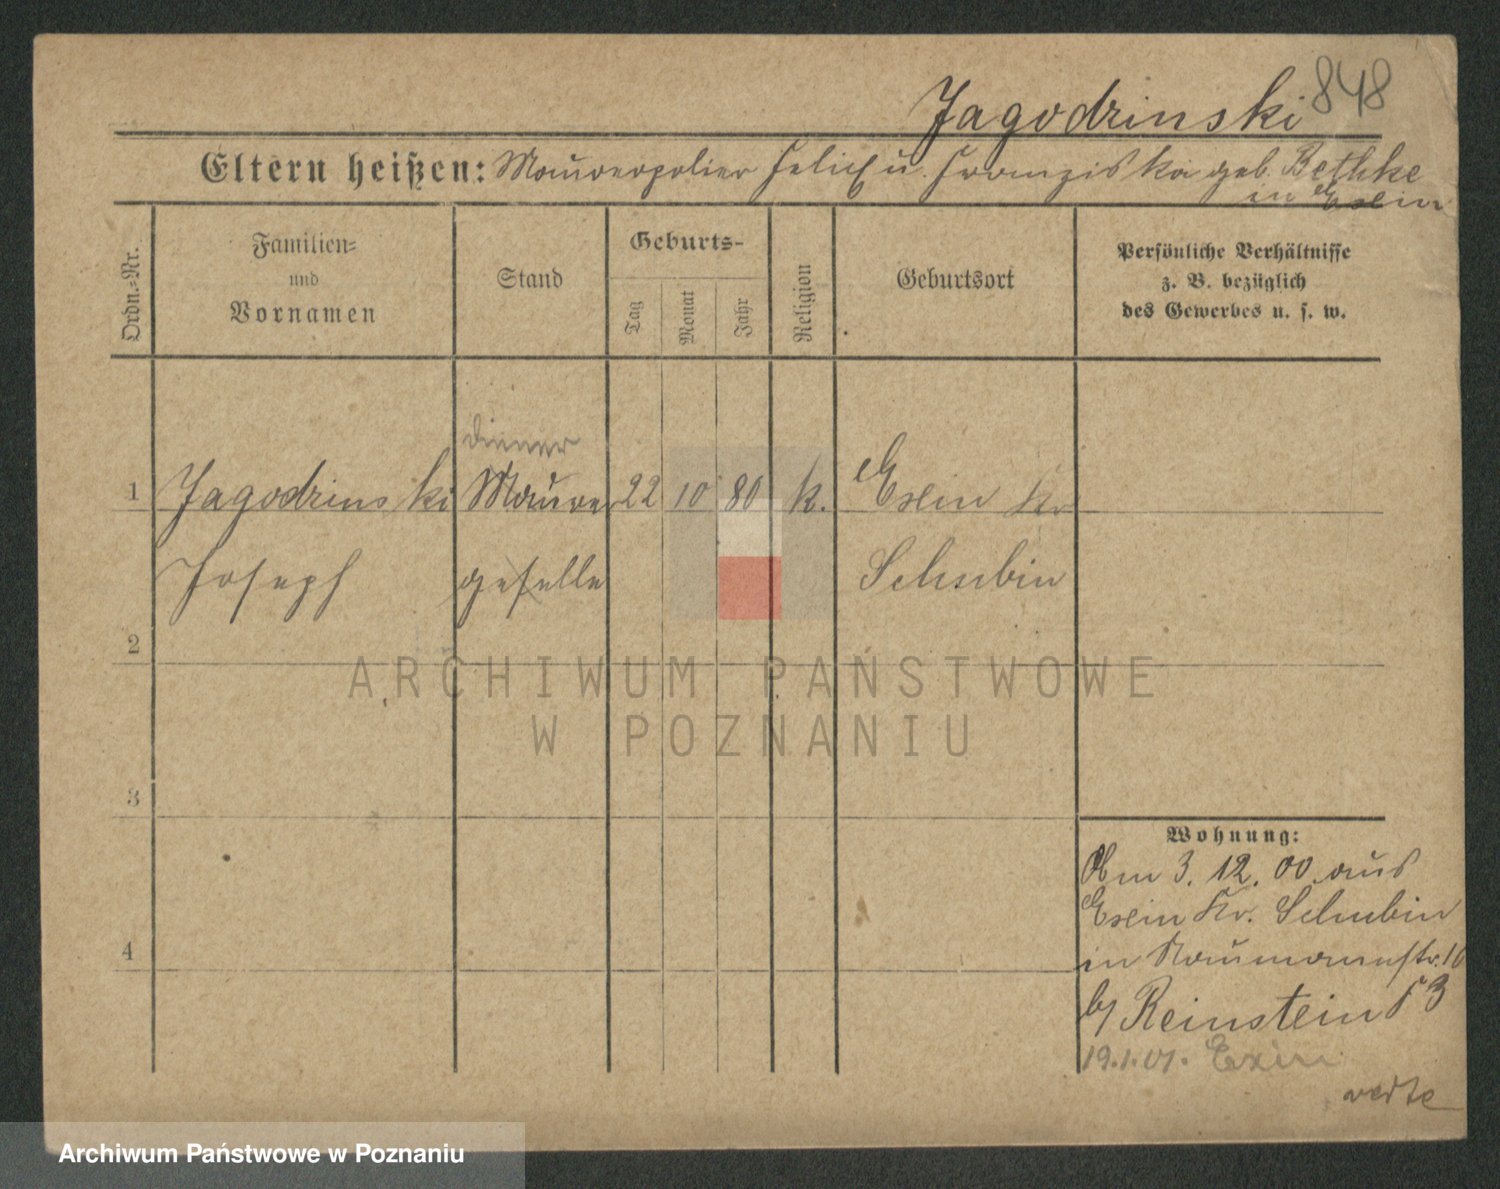 Jagodzinski 848
Eltern heißen: Maurerpolier Felix u. Franziska geb. Bethke
in Exin
Ordn.-Nr.
Familien-
und
Vornamen
Stand
Geburts-
Tag
Monat
Jahr
Religion
Geburtsort
Persönliche Verhältnisse
z. B. bezüglich
des Gewerbes u. s. w.
Diener
1 Jagodzinski Maurer 22 10 80 k. Exin Kr
Joseph geselle Schubin
2
3
4
Wohnung:
Am 3. 12. 00 aus
Exin Kr. Schubin
in Naumannstr. 10
b/ Reinstein
19.1.01. Exin
verte
ARCHIWUM PAŃSTWOWE
W POZNANIU
Archiwum Państwowe w Poznaniu